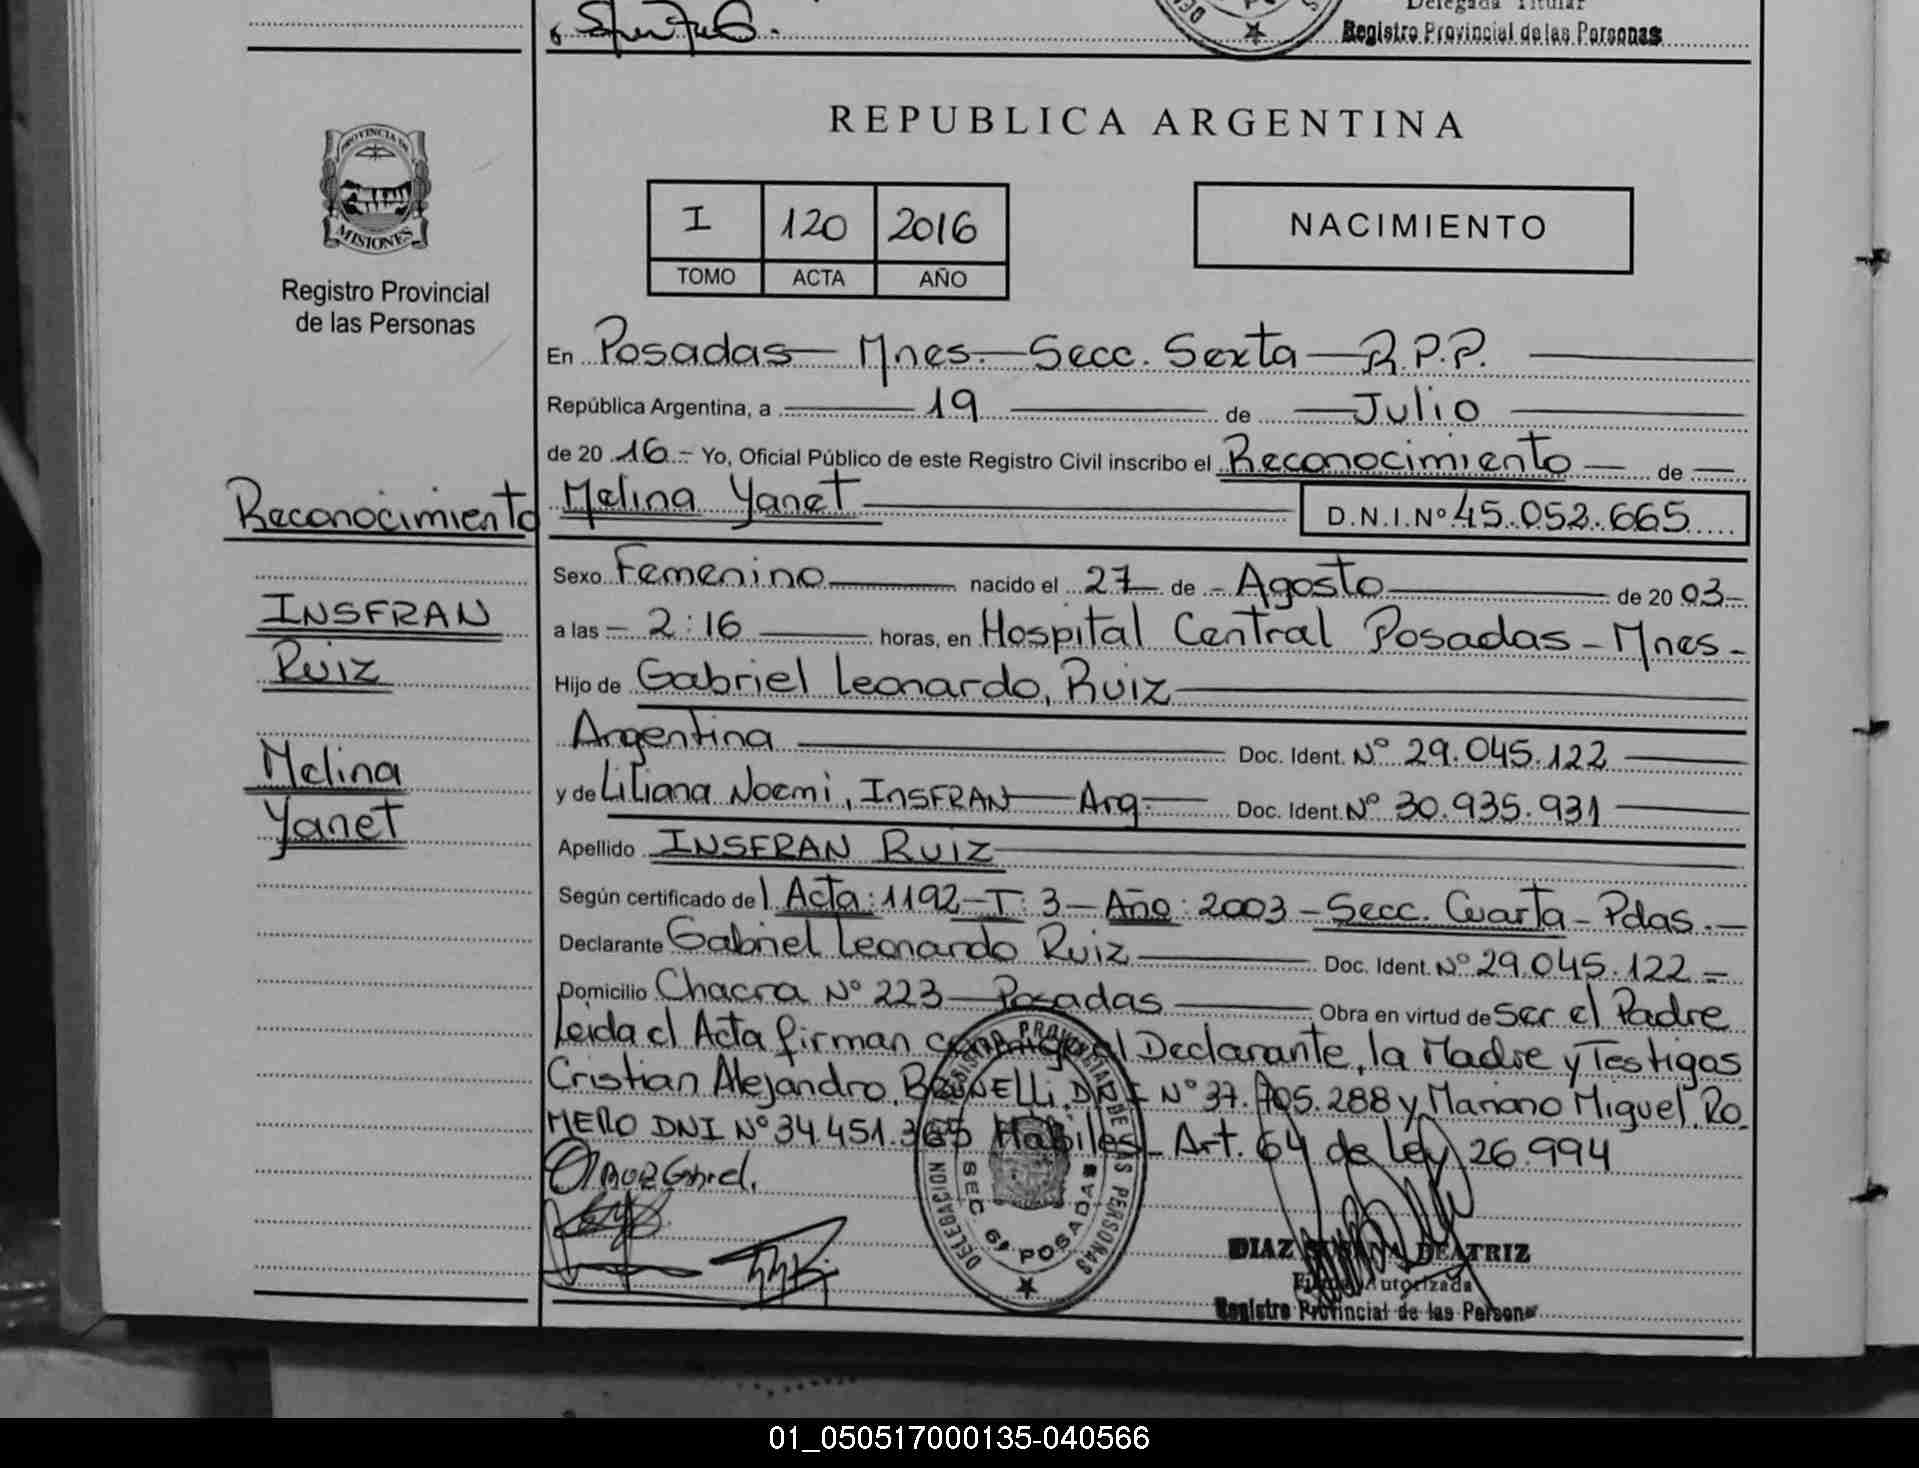 Delegada Titular
Registro Provincial de las Personas
REPUBLICA ARGENTINA
PROVINCIA DE
MISIONES
Registro Provincial
de las Personas
I 120 2016
TOMO ACTA AÑO
NACIMIENTO
En Posadas — Mnes. — Secc. Sexta — R.P.P.
República Argentina, a 19 de Julio
de 20 16.- Yo, Oficial Público de este Registro Civil inscribo el Reconocimiento de
Melina Yanet D.N.I.Nº 45.052.665
Reconocimiento
INSFRAN
Ruiz
Melina
Yanet
Sexo Femenino nacido el 27 de Agosto de 20 03-
a las 2:16 horas, en Hospital Central Posadas - Mnes -
Hijo de Gabriel Leonardo, Ruiz
Argentina Doc. Ident. Nº 29.045.122
y de Liliana Noemi, INSFRAN — Arg. — Doc. Ident. Nº 30.935.931
Apellido INSFRAN RUIZ
Según certificado de l Acta: 1192 - T: 3 - Año: 2003 - Secc. Cuarta - Pdas. -
Declarante Gabriel Leonardo Ruiz Doc. Ident. Nº 29.045.122 =
Domicilio Chacra Nº 223 — Posadas Obra en virtud de ser el Padre
Leida el Acta firman conmigo el Declarante, la Madre y Testigos
Cristian Alejandro, DNI Nº 37.705.288 y Mariano Miguel, Ro-
MERO DNI Nº 34.451.365 Habiles - Art. 64 de Ley 26.994
Ruiz Gabriel.
DELEGACION REGISTRO PROVINCIAL DE LAS PERSONAS
SEC 6ª POSADAS
DIAZ SUSANA BEATRIZ
Firma Autorizada
Registro Provincial de las Personas
01_050517000135-040566